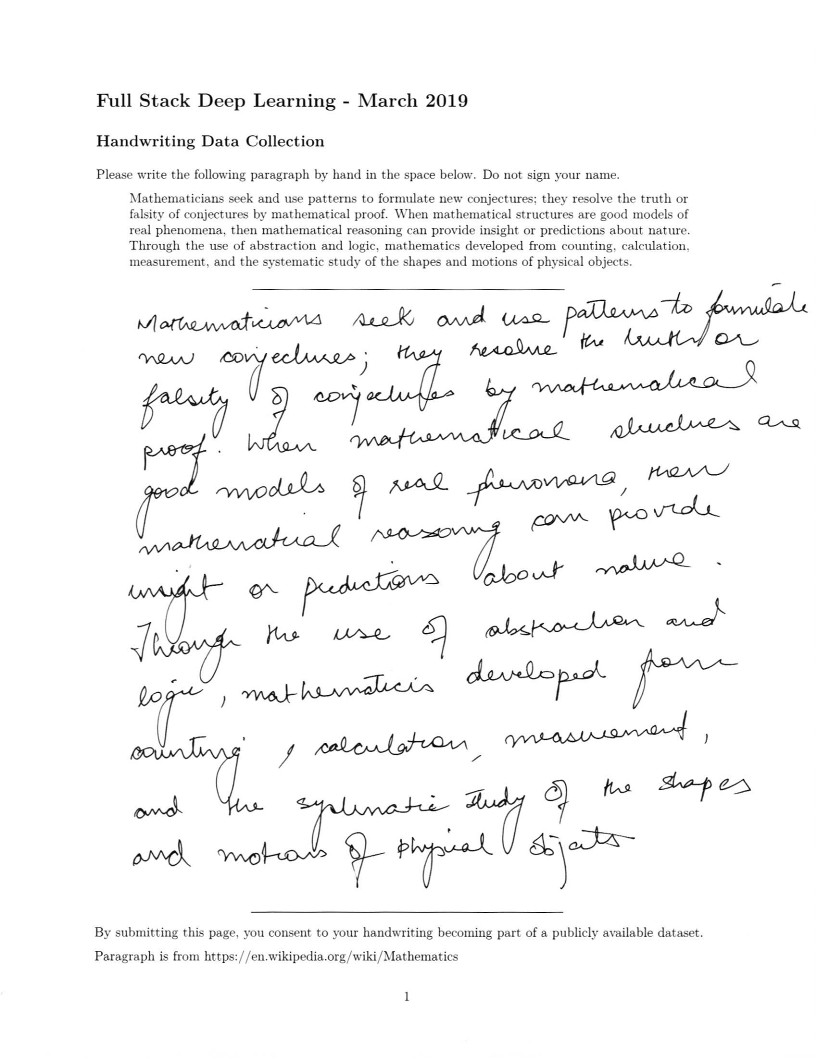 Full Stack Deep Learning - March 2019
Handwriting Data Collection
Please write the following paragraph by hand in the space below. Do not sign your name.
Mathematicians seek and use patterns to formulate new conjectures; they resolve the truth or
falsity of conjectures by mathematical proof. When mathematical structures are good models of
real phenomena, then mathematical reasoning can provide insight or predictions about nature.
Through the use of abstraction and logic, mathematics developed from counting, calculation,
measurement, and the systematic study of the shapes and motions of physical objects.
Mathematicians seek and use patterns to formulate
new conjectures; they resolve the truth or
falsity of conjectures by mathematical
proof. When mathematical structures are
good models of real phenomena, then
mathematical reasoning can provide
insight or predictions about nature.
Through the use of abstraction and
logic, mathematics developed from
counting, calculation, measurement,
and the systematic study of the shapes
and motions of physical objects
By submitting this page, you consent to your handwriting becoming part of a publicly available dataset.
Paragraph is from https://en.wikipedia.org/wiki/Mathematics
1